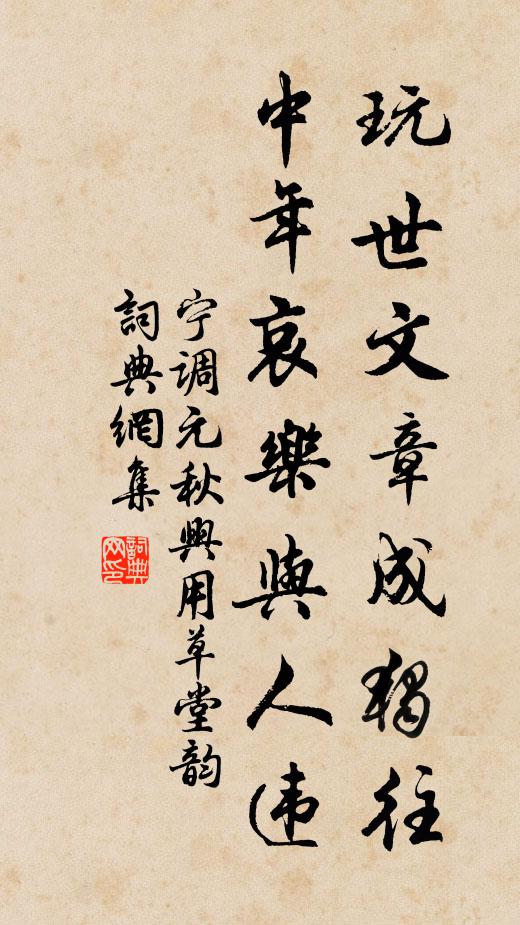 玩世文章成獨往
中年哀樂與人违
宁调元秋興用草堂韵
詞典網集
詞典
网印